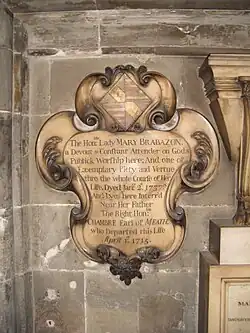 The Hon.ble Lady MARY BRABAZON,
a Devout & Constant Attender on Gods
Publick Worship here; And one of
Exemplary Piety and Vertue
thro the whole Course of Her
Life, Dyed Jan.y 2.d 1737/8
And lyes here Interred
Near Her Father
The Right Hon.ble
CHAMBRE Earl of MEATH
who Departed this Life
April 1.st 1715.